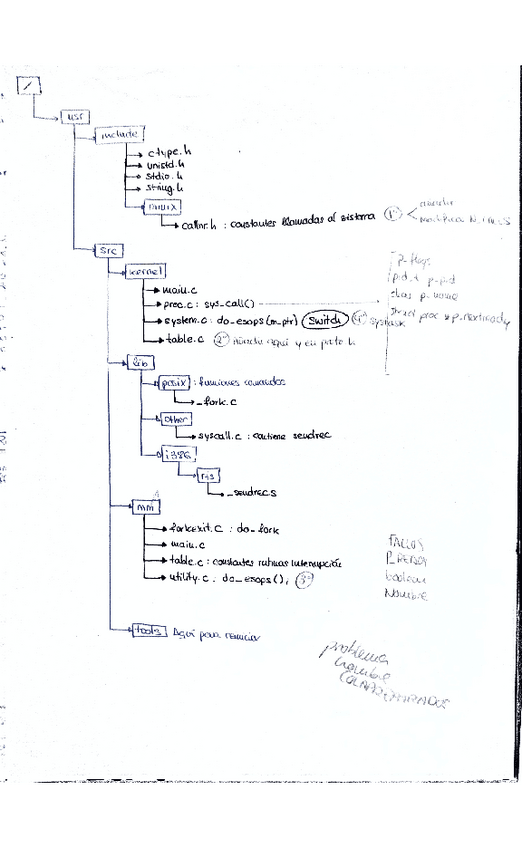 /
usr
include
ctype.h
unistd.h
stdio.h
string.h
minix
callnr.h : constantes llamadas al sistema 1º
src
kernel
main.c
proc.c : sys_call()
system.c : do_esops(m_ptr) Switch 4º systask
table.c 2º añadir aquí y en proto.h
p_flags
pid_t p_pid
char p_name
struct proc *p_nextready
lib
posix : funciones comandos
_fork.c
other
syscall.c : contiene sendrec
i386
rts
_sendrec.s
mm
forkexit.c : do_fork
main.c
table.c : constantes rutinas interrupción
utility.c : do_esops(); 3º
FALLOS
P_READY
boolean
Nombre
tools Aquí para reiniciar
problema
nombre